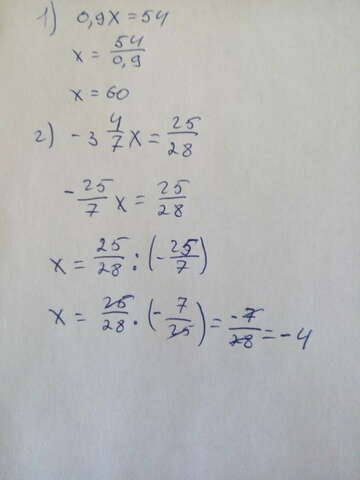 1) 0,9x = 54
x = 54/0,9
x = 60
2) -3 4/7 x = 25/28
-25/7 x = 25/28
x = 25/28 : (-25/7)
x = 25/28 · (-7/25) = -7/28 = -4